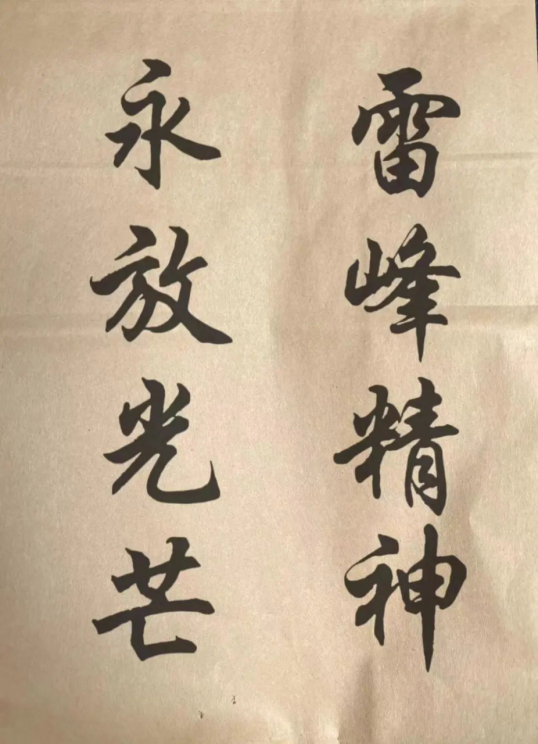 雷峰精神
永放光芒